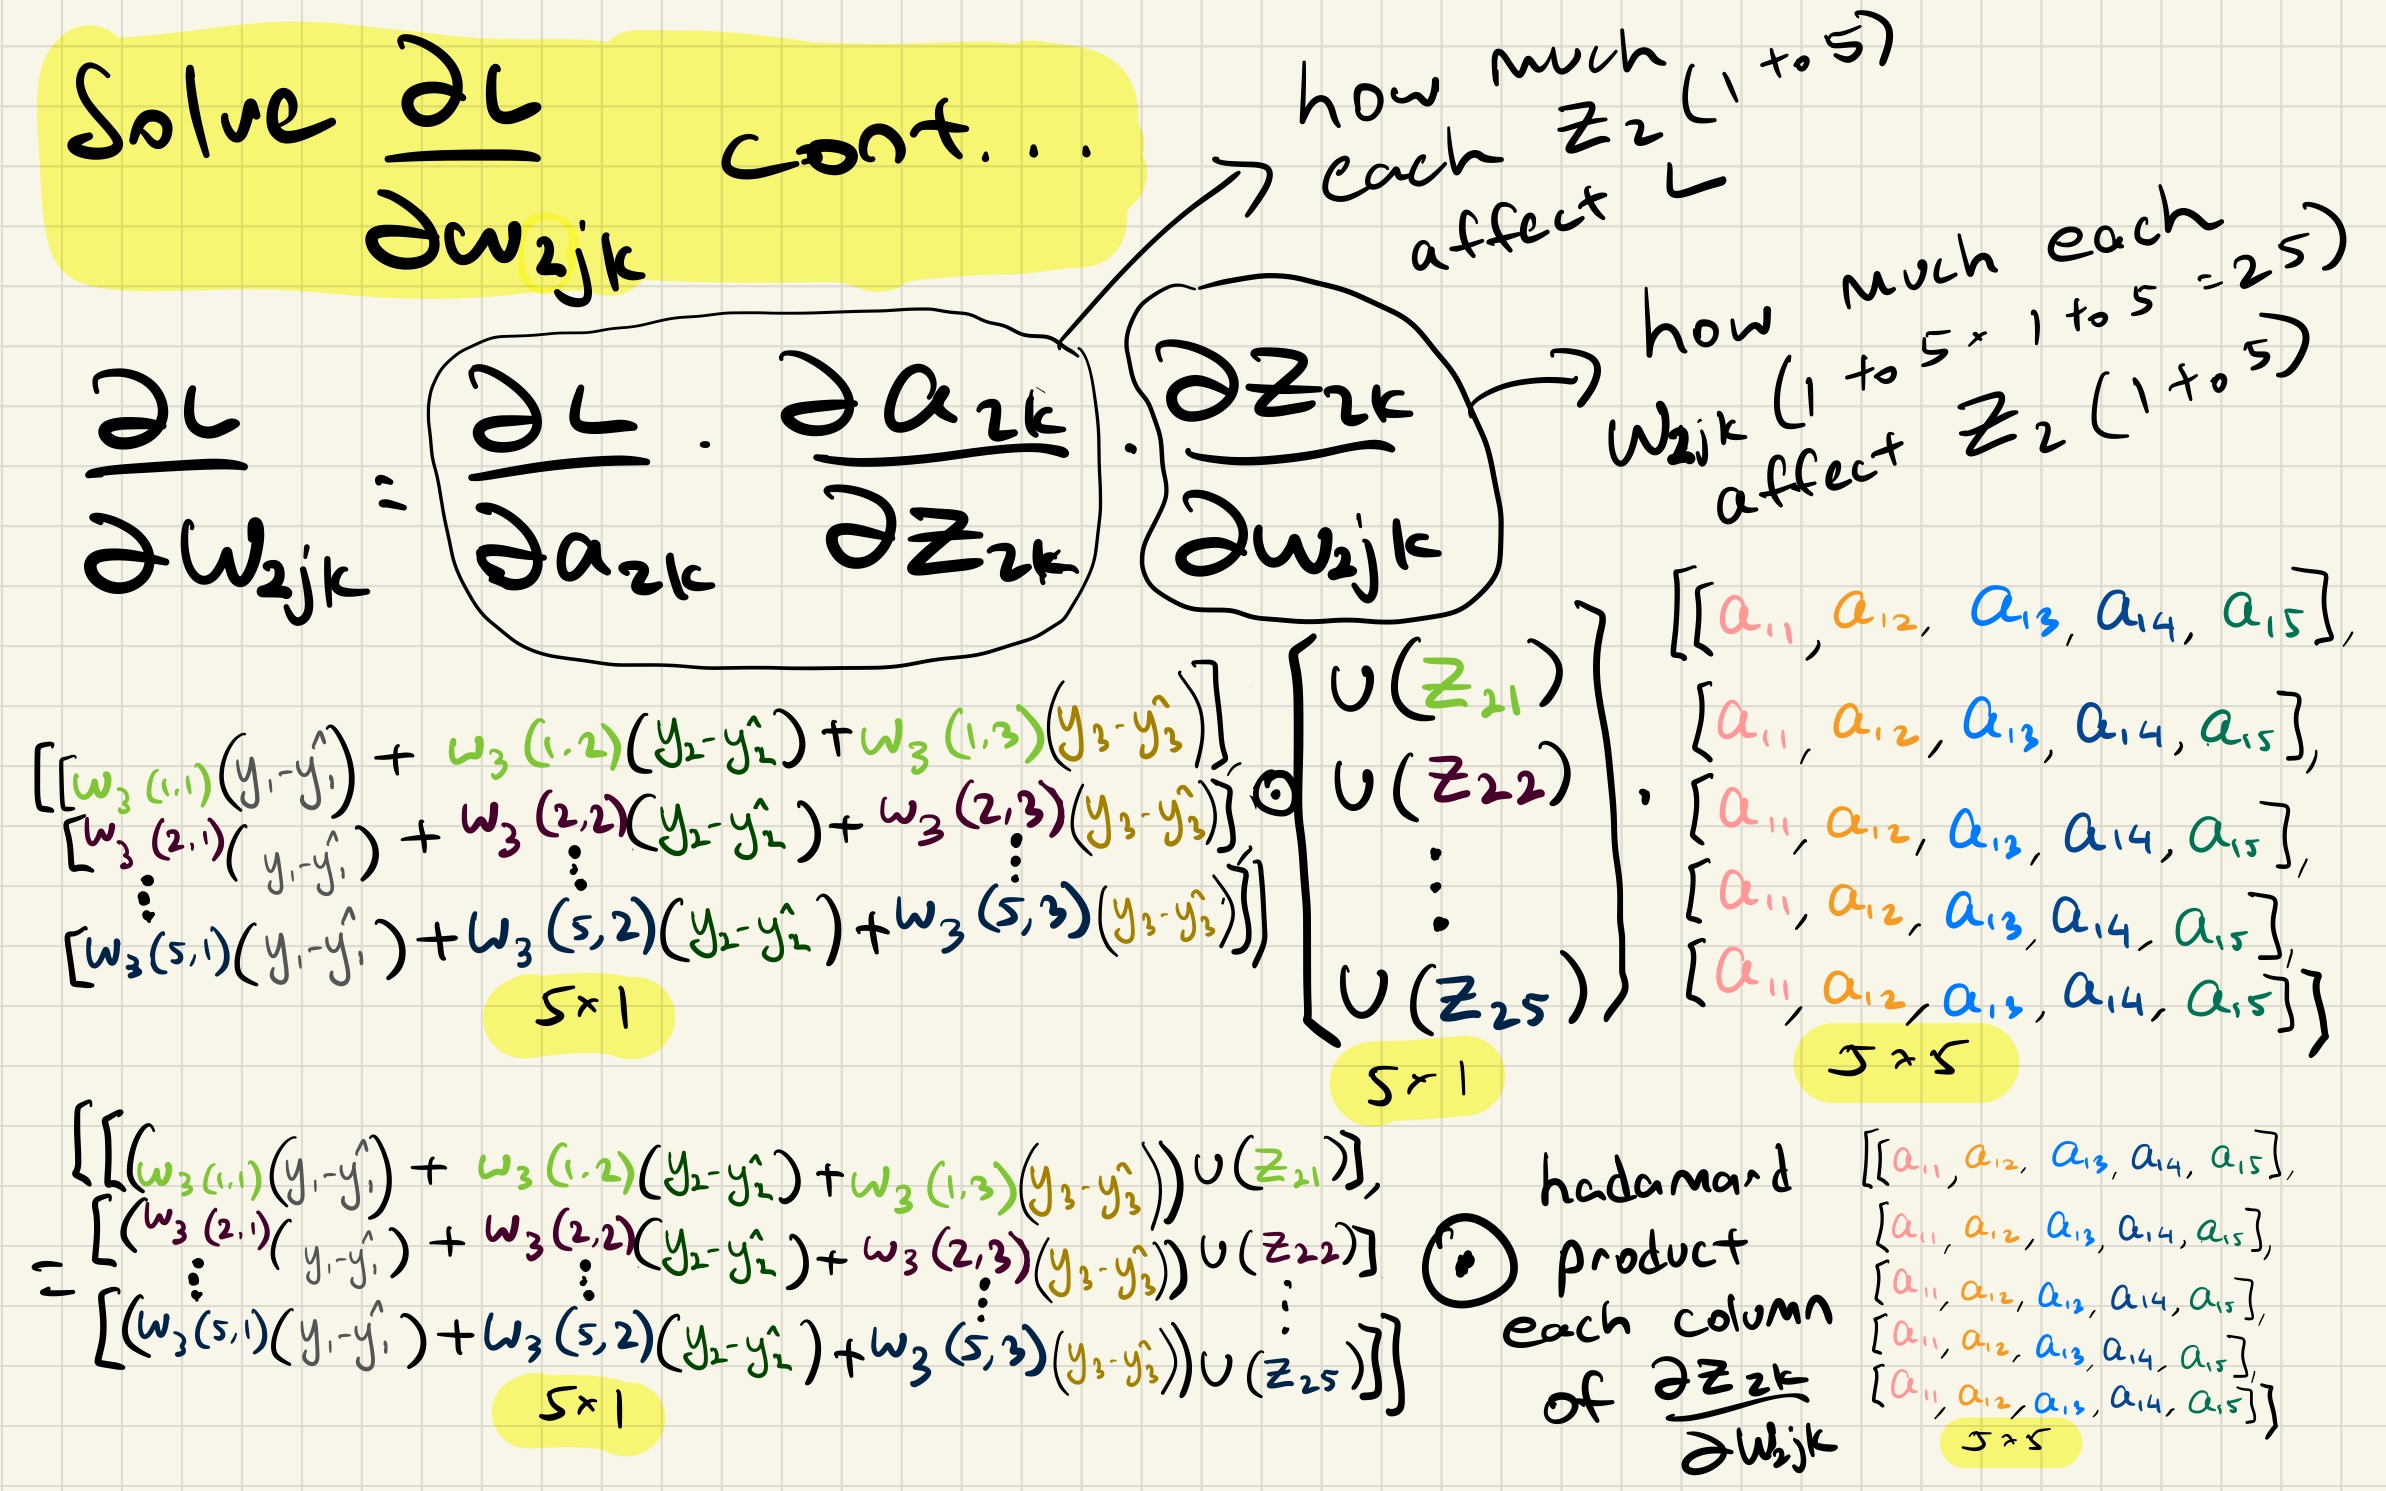 Solve ∂L/∂w₂jk cont...
how much
each Z₂ (1 to 5)
affect L
how much each
W₂jk (1 to 5 × 1 to 5 = 25)
affect Z₂ (1 to 5)
∂L/∂W₂jk = ∂L/∂a₂k · ∂a₂k/∂Z₂k · ∂Z₂k/∂W₂jk
[[w₃(1,1)(y₁-ŷ₁) + w₃(1,2)(y₂-ŷ₂) + w₃(1,3)(y₃-ŷ₃)],
[w₃(2,1)(y₁-ŷ₁) + w₃(2,2)(y₂-ŷ₂) + w₃(2,3)(y₃-ŷ₃)],
⋮ ⋮ ⋮
[w₃(5,1)(y₁-ŷ₁) + w₃(5,2)(y₂-ŷ₂) + w₃(5,3)(y₃-ŷ₃)]]
5×1
⊙
[U(Z₂₁)
U(Z₂₂)
⋮
U(Z₂₅)]
5×1
·
[[a₁₁, a₁₂, a₁₃, a₁₄, a₁₅],
[a₁₁, a₁₂, a₁₃, a₁₄, a₁₅],
[a₁₁, a₁₂, a₁₃, a₁₄, a₁₅],
[a₁₁, a₁₂, a₁₃, a₁₄, a₁₅],
[a₁₁, a₁₂, a₁₃, a₁₄, a₁₅]]
5×5
= [[(w₃(1,1)(y₁-ŷ₁) + w₃(1,2)(y₂-ŷ₂) + w₃(1,3)(y₃-ŷ₃))U(Z₂₁)],
[(w₃(2,1)(y₁-ŷ₁) + w₃(2,2)(y₂-ŷ₂) + w₃(2,3)(y₃-ŷ₃))U(Z₂₂)]
⋮ ⋮ ⋮ ⋮
[(w₃(5,1)(y₁-ŷ₁) + w₃(5,2)(y₂-ŷ₂) + w₃(5,3)(y₃-ŷ₃))U(Z₂₅)]]
5×1
⊙
hadamard
product
each column
of ∂Z₂k/∂W₂jk
[[a₁₁, a₁₂, a₁₃, a₁₄, a₁₅],
[a₁₁, a₁₂, a₁₃, a₁₄, a₁₅],
[a₁₁, a₁₂, a₁₃, a₁₄, a₁₅],
[a₁₁, a₁₂, a₁₃, a₁₄, a₁₅],
[a₁₁, a₁₂, a₁₃, a₁₄, a₁₅]]
5×5